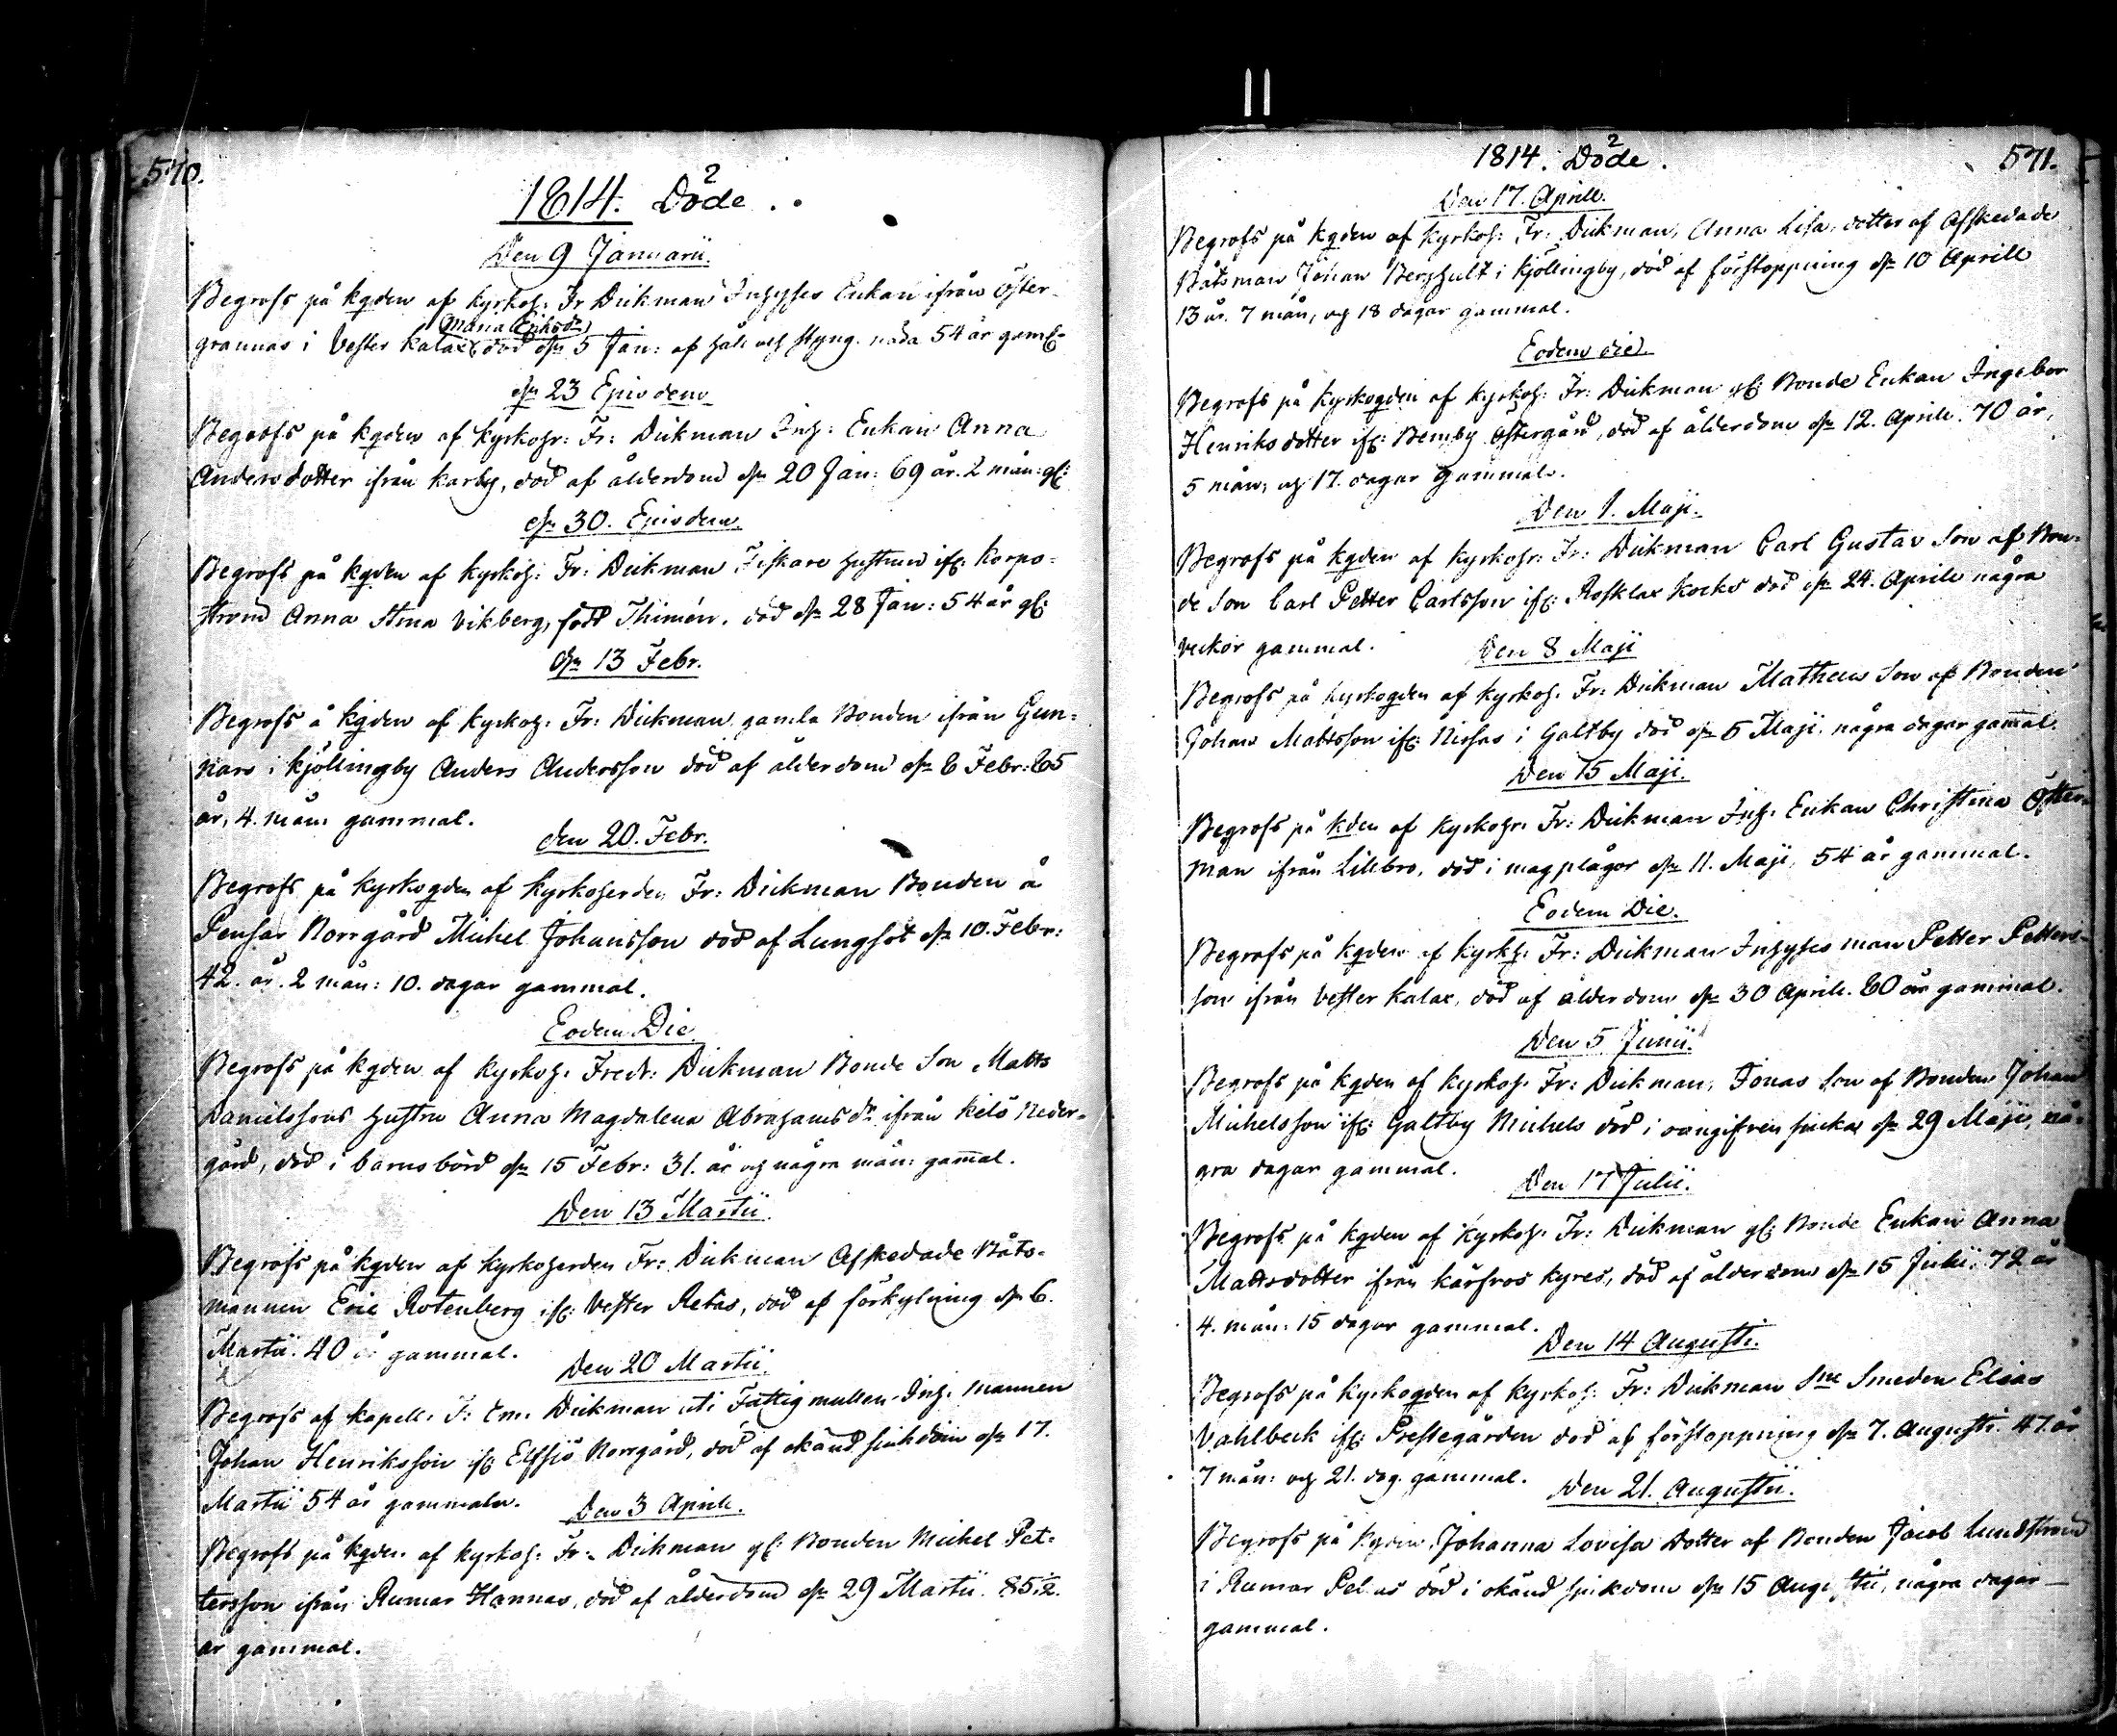 570.
1814. Döde.
Den 9 Januarii.
Begrofs på kgden af kyrkoh: Fr Dickman Inhyses Enkan ifrån Öster-
Maria Ersdr
grannas i Vester Kalax, död dn 5 Jan: af håll och styng. 54 år gaml:
dn 23 Ejusdem
Begrofs på kgden af kyrkohr: Fr: Dickman Inh: Enkan Anna
Andersdotter ifrån Karby, död af ålderdom dn 20 Jan: 69 år. 2 mån: gl:
dn 30. Ejusdem.
Begrofs på kgden af kyrkoh: Fr: Dickman Fiskare hustrun ifr: Korpo-
ström Anna Stina Vikberg, född Thimén. död dn 28 Jan: 54 år gl:
dn 13 Febr.
Begrofs å kgden af kyrkoh: Fr: Dickman gamla Bonden ifrån Gun-
nars i Kjöllingby Anders Andersson död af ålderdom dn 6 Febr: 65
år, 4. mån: gammal.
den 20. Febr.
Begrofs på kyrkogden af kyrkoherden Fr: Dickman Bonden å
Pensar Norrgård Michel Johansson död af Lungsot dn 10. Febr:
42. år. 2 mån: 10. dagar gammal.
Eodem Die
Begrofs på kgden af kyrkoh: Fredr: Dickman Bonde Son Matts
Danielssons hustru Anna Magdalena Abrahamsdr ifrån Kelö Neder-
gård, död i barnsbörd dn 15 Febr: 31. år och några mån: gamal.
Den 13 Martii.
Begrofs på kgden af kyrkoherden Fr: Dickman Afskedade Båts-
mannen Eric Rotenberg ifr: Vester Retais, död af förkylning dn 6.
Martii. 40 år gammal.
Den 20 Martii.
Begrofs af kapell: F: Em: Dickman uti Fattigmullen Inh: mannen
Johan Henriksson ifr: Elfsjö Norrgård, död af okänd sjukdom dn 17.
Martii 54 år gammal.
Den 3 Aprill.
Begrofs på kgden af kyrkoh: Fr: Dickman gl: Bonden Michel Pet-
tersson ifrån Rumar Hannas, död af ålderdom dn 29 Martii. 85 1/2.
år gammal.
1814. Döde.
571.
Den 17. Aprill.
Begrofs på kgden af kyrkoh: Fr: Dickman, Anna Lisa, dotter af Afskedade
Båtsman Johan Berghult i Kjöllingby, död af förstoppning dn 10 Aprill
13 år. 7 mån, och 18 dagar gammal.
Eodem die.
Begrofs på kyrkogden af kyrkoh: Fr: Dickman gl: Bonde Enkan Ingebor
Henriksdotter ifr: Bemby Östergård, död af ålderdom dn 12. Aprill. 70 år,
5 mån, och 17. dagar gammal.
Den 1. Maji.
Begrofs på kgden af kyrkohr: Fr: Dickman Carl Gustav Son af Bon-
de Son Carl Petter Carlsson ifr: Rosklax Kocks död dn 24. Aprill några
veckor gammal.
Den 8 Maji
Begrofs på kyrkogden af kyrkoh: Fr: Dickman Matheus Son af Bonden
Johan Mattsson ifr: Nissas i Galtby död dn 5 Maji, några dagar gamal.
Den 15 Maji.
Begrofs på kden af kyrkohr: Fr: Dickman Inh: Enkan Christina Öster-
man ifrån Lillbro, död i magplågor dn 11. Maji, 54 år gammal.
Eodem Die.
Begrofs på kgden af kyrkh: Fr: Dickman Inhyses man Petter Petters-
son ifrån Vester Kalax, död af ålderdom dn 30 Aprill. 60 år gammal.
Den 5 Junii.
Begrofs på kgden af kyrkoh: Fr: Dickman, Jonas Son af Bonden Johan
Michelsson ifr: Galtby Michels död i oangifven sjukd dn 29 Maji, nå-
gra dagar gammal.
Den 17 Julii.
Begrofs på kgden af kyrkoh: Fr: Dickman gl: Bonde Enkan Anna
Mattsdotter ifrån Kårfros Kyres, död af ålderdom dn 15 Julii, 72 år
4. mån: 15 dagar gammal.
Den 14 Augusti.
Begrofs på kyrkogden af kyrkoh: Fr: Dickman Sne Smeden Elias
Vahlbeck ifr: Prestegården död af förstoppning dn 7. Augusti. 47 år
7 mån: och 21. dag. gammal.
Den 21. Augustii.
Begrofs på kgden, Johanna Lovisa Dotter af Bonden Jacob Lundström
i Rumar Pel as död i okänd sjukdom dn 15 Augustii, några dagar
gammal.